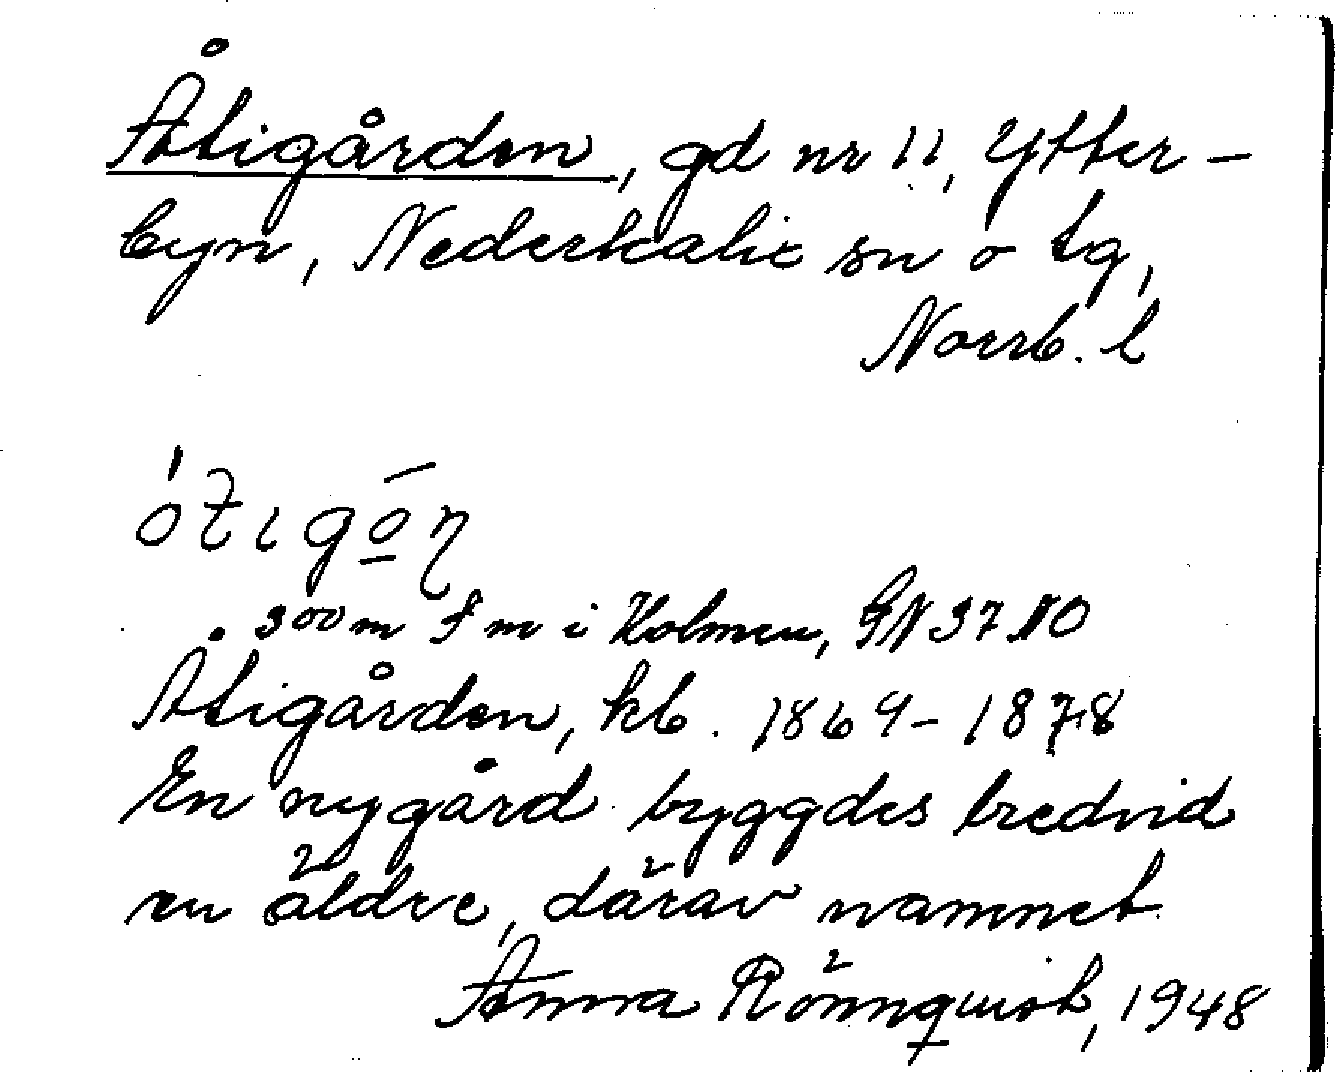 Åtigården, gd nr 11, Ytter-
byn, Nederkalix sn o tg,
Norrb. l
300 m i Holmen,
Åtigården, kb. 1869-1878
En nygård byggdes bredvid
en äldre, därav namnet
Anna Rönnquist, 1948